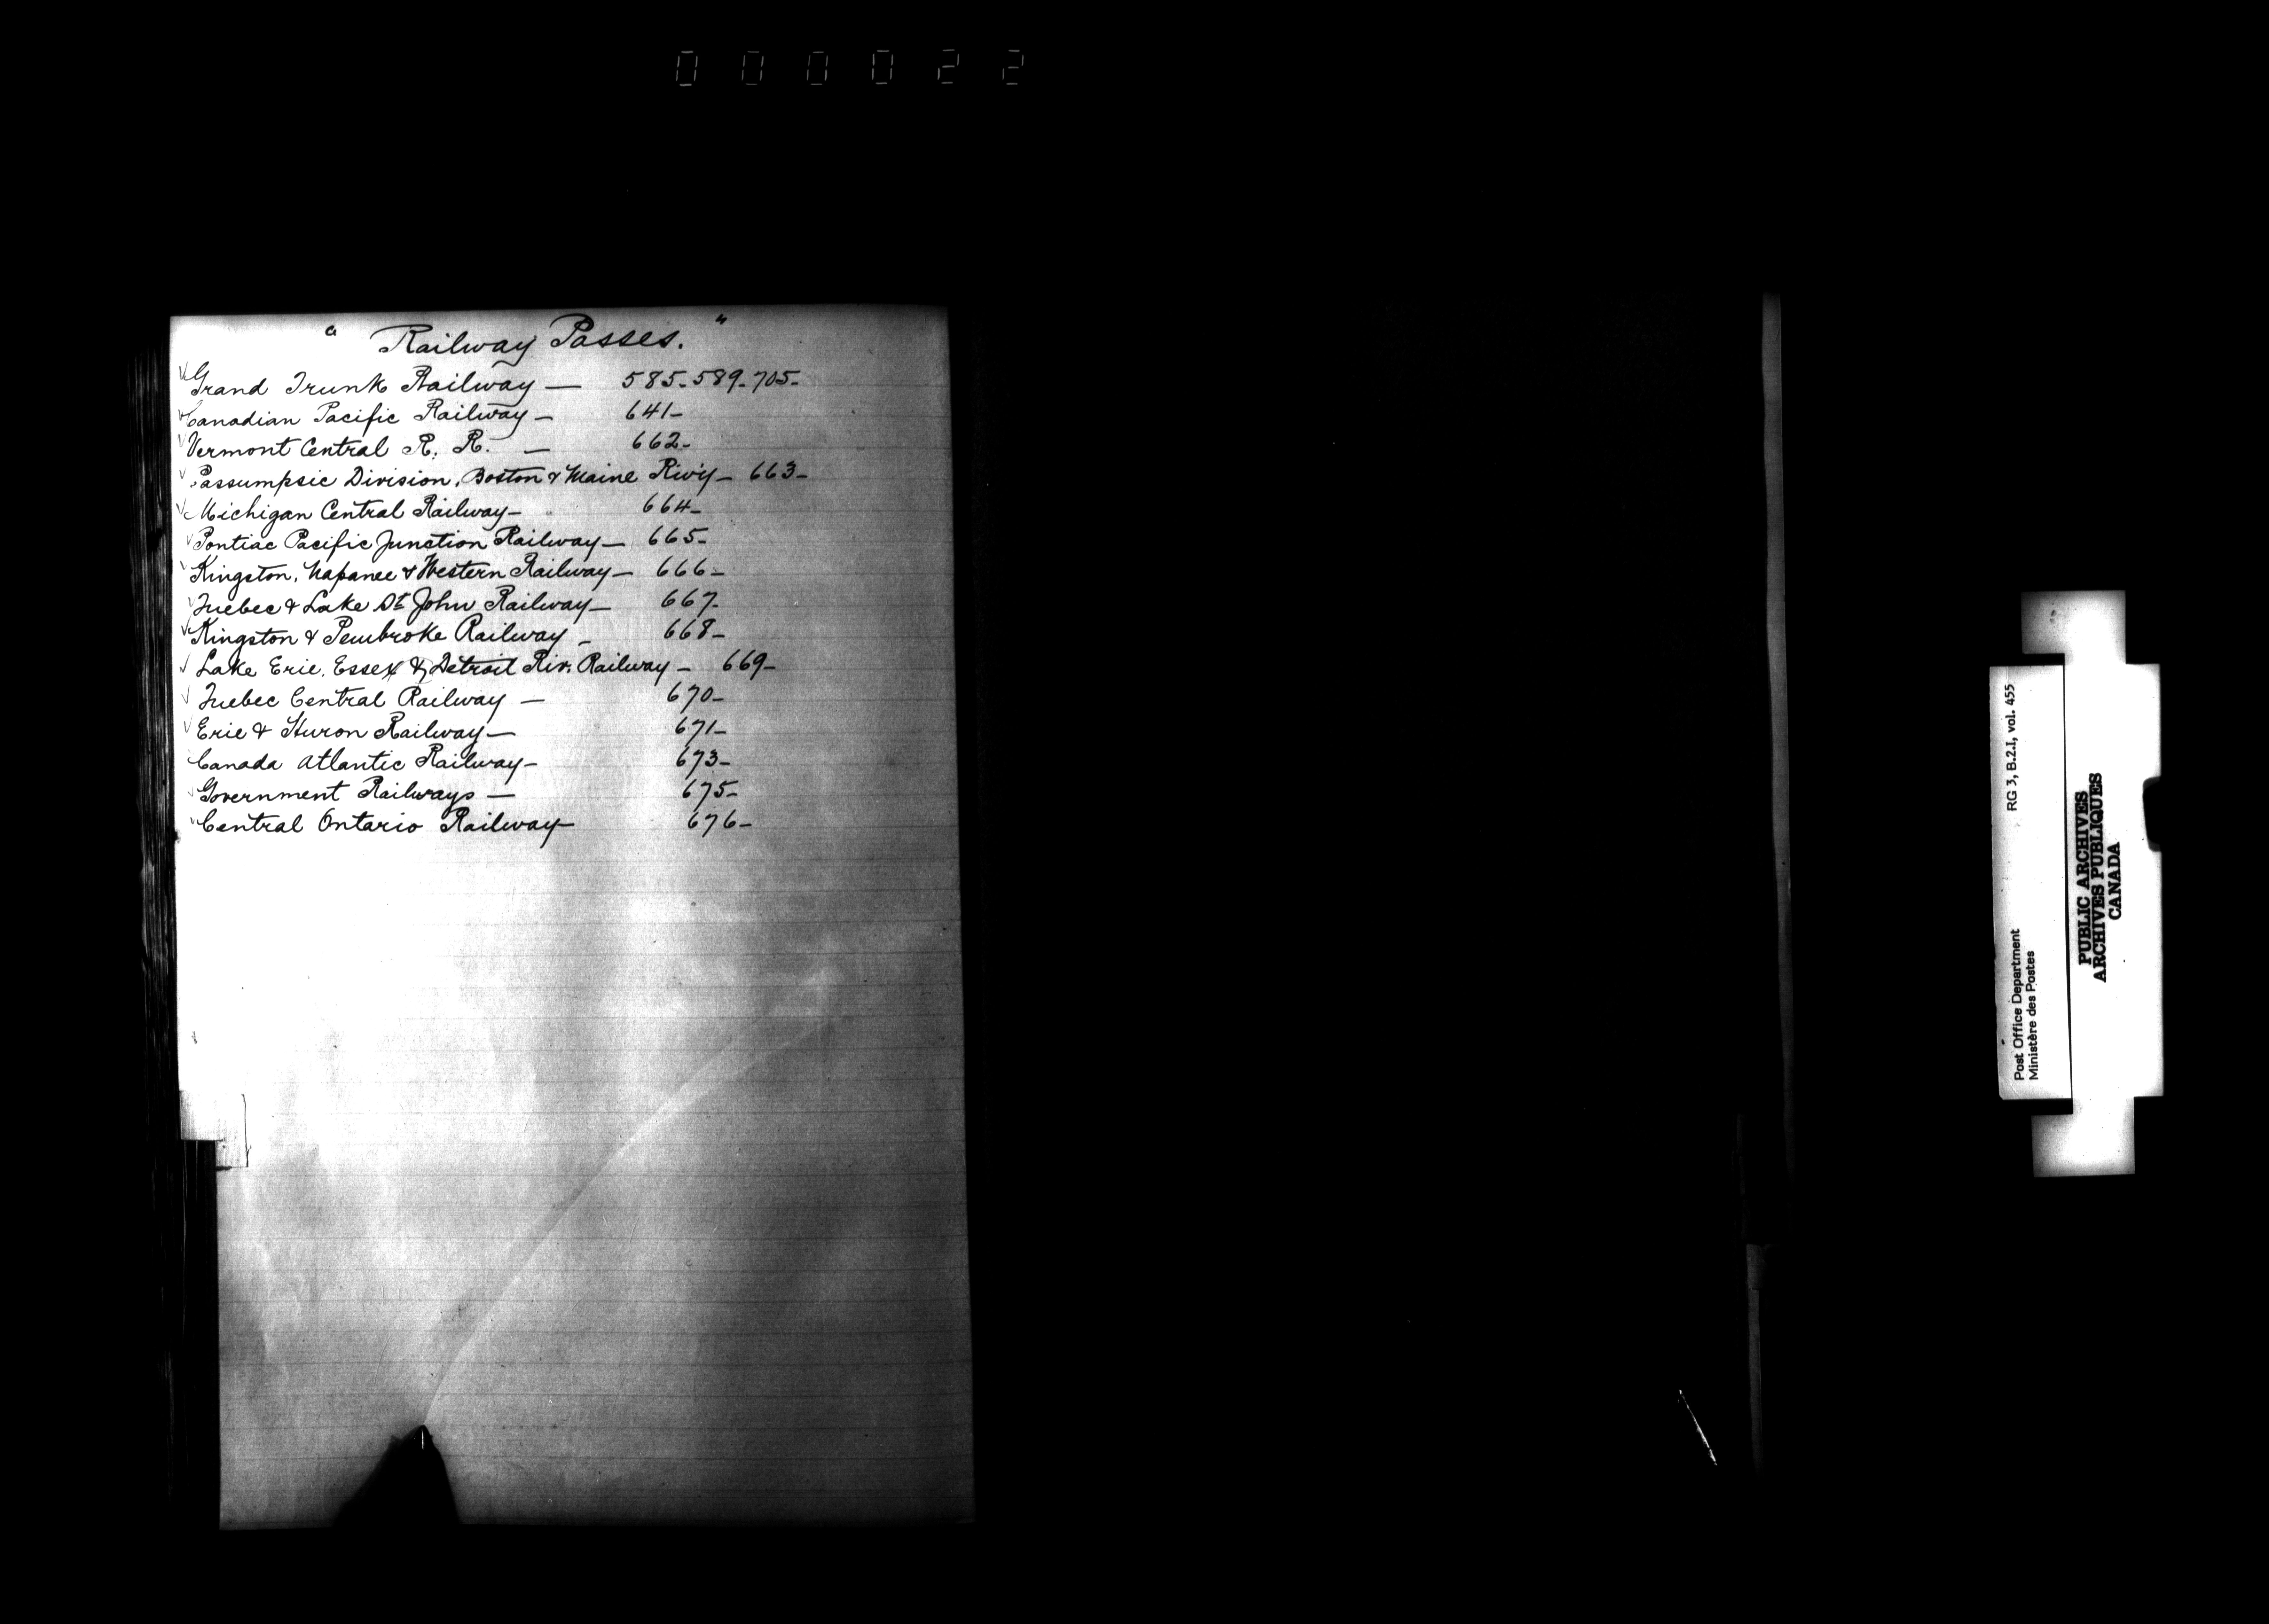 000022
" Railway Passes. "
Grand Trunk Railway — 585-589-705-
Canadian Pacific Railway — 641-
Vermont Central R. R. — 662-
Passumpsic Division, Boston & Maine Rw'y — 663-
Michigan Central Railway — 664-
Pontiac Pacific Junction Railway — 665-
Kingston, Napanee & Western Railway — 666-
Quebec & Lake St John Railway — 667-
Kingston & Pembroke Railway — 668-
Lake Erie, Essex & Detroit Riv. Railway — 669-
Quebec Central Railway — 670-
Erie & Huron Railway — 671-
Canada Atlantic Railway — 673-
Government Railways — 675-
Central Ontario Railway — 676-
Post Office Department RG 3, B.2.I, vol. 455
Ministère des Postes
PUBLIC ARCHIVES
ARCHIVES PUBLIQUES
CANADA